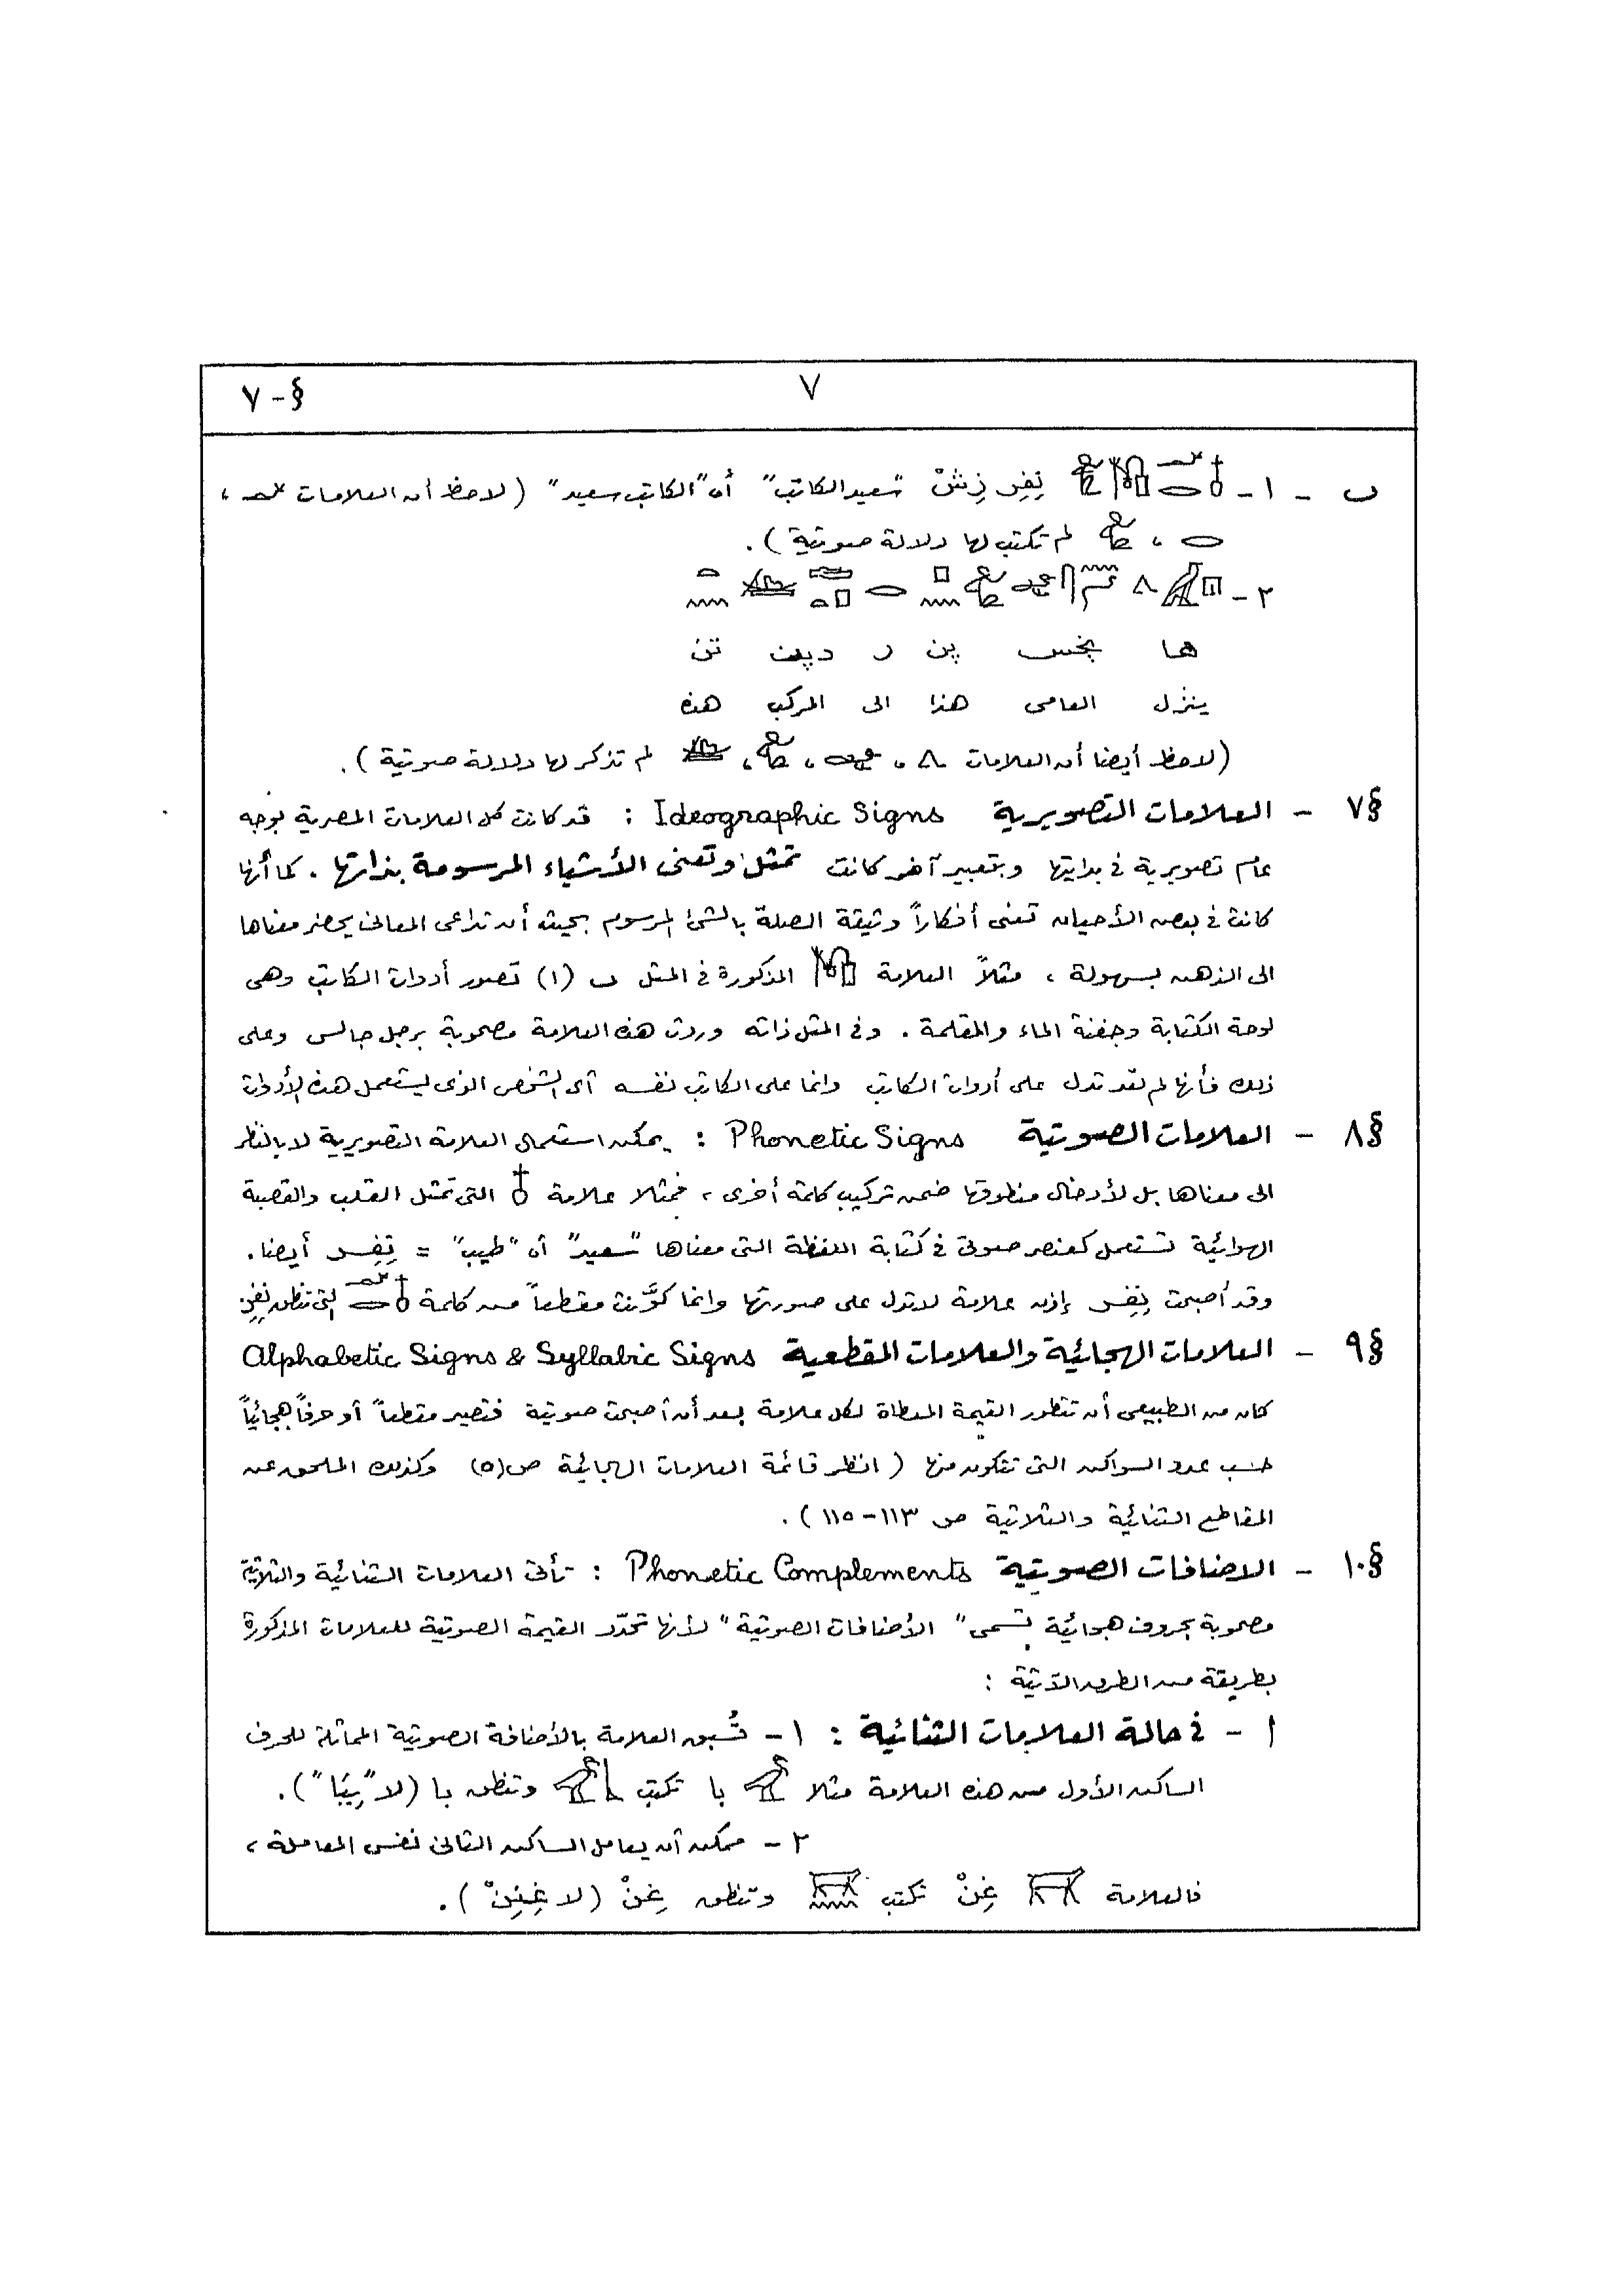 ٧
§-٧
ب - ١- نِفِر زِشْ "سعيد الكاتب" أى "الكاتب سعيد" (لاحظ أن العلامات ،
، لم تكتب لها دلالة صوتية).
٢-
ها پن ر دپت تن
ينزل العامى هذا الى المركب هذه
(لاحظ أيضا أن العلامات ، ، ، لم تذكر لها دلالة صوتية).
§٧ - العلامات التصويرية Ideographic Signs : قد كانت كل العلامات المصرية بوجه
عام تصويرية فى بدايتها وبتعبير آخر كانت تمثل وتعنى الأشياء المرسومة بذاتها . كما أنها
كانت فى بعض الأحيان تعنى أفكاراً وثيقة الصلة بالشئ المرسوم بحيث أن تداعى المعانى يحضر معناها
الى الذهن بسهولة ، مثلاً العلامة المذكورة فى المثل ب (١) تصور أدوات الكاتب وهى
لوحة الكتابة وجفنة الماء والمقلمة . وفى المثل ذاته وردت هذه العلامة مصحوبة برجل جالس وعلى
ذلك فأنها لم تعد تدل على أدوات الكاتب وانما على الكاتب نفسه أى الشخص الذى يستعمل هذه الأدوات
§٨ - العلامات الصوتية Phonetic Signs : يمكن استعمال العلامة التصويرية لا بالنظر
الى معناها بل لأدخال منطوقها ضمن تركيب كلمة أخرى ، فمثلا علامة التى تمثل القلب والقصبة
الهوائية تستعمل كعنصر صوتى فى كتابة اللفظة التى معناها "سعيد" أى "طيب" = نِفِر أيضا.
وقد أصبحت نِفِر إذن علامة لا تدل على صورتها وانما كوَّنت مقطعاً من كلمة التى تنطق نِفِر
§٩ - العلامات الهجائية والعلامات المقطعية Alphabetic Signs & Syllabic Signs
كان من الطبيعى أن تتطور القيمة المعطاة لكل علامة بعد أن أصبحت صوتية فتصير مقطعاً أو حرفاً هجائياً
حسب عدد السواكن التى تتكون منها ( انظر قائمة العلامات الهجائية ص(٥) وكذلك الملحق عن
المقاطع الثنائية والثلاثية ص ١١٣-١١٥ ).
§١٠ - الاضافات الصوتية Phonetic Complements : تأتى العلامات الثنائية والثلاثية
مصحوبة بحروف هجائية تسمى " الأضافات الصوتية " لأنها تحدّد القيمة الصوتية للعلامات المذكورة
بطريقة من الطرق الآتية :
أ - فى حالة العلامات الثنائية : ١ - تُسبق العلامة بالأضافة الصوتية المماثلة للحرف
الساكن الأول من هذه العلامة مثلا با تكتب وتنطق با (لا "بِبَا").
٢ - ممكن أن يعامل الساكن الثانى نفس المعاملة ،
فالعلامة غِنْ تكتب وتنطق غِنْ (لا غِنِنْ ).